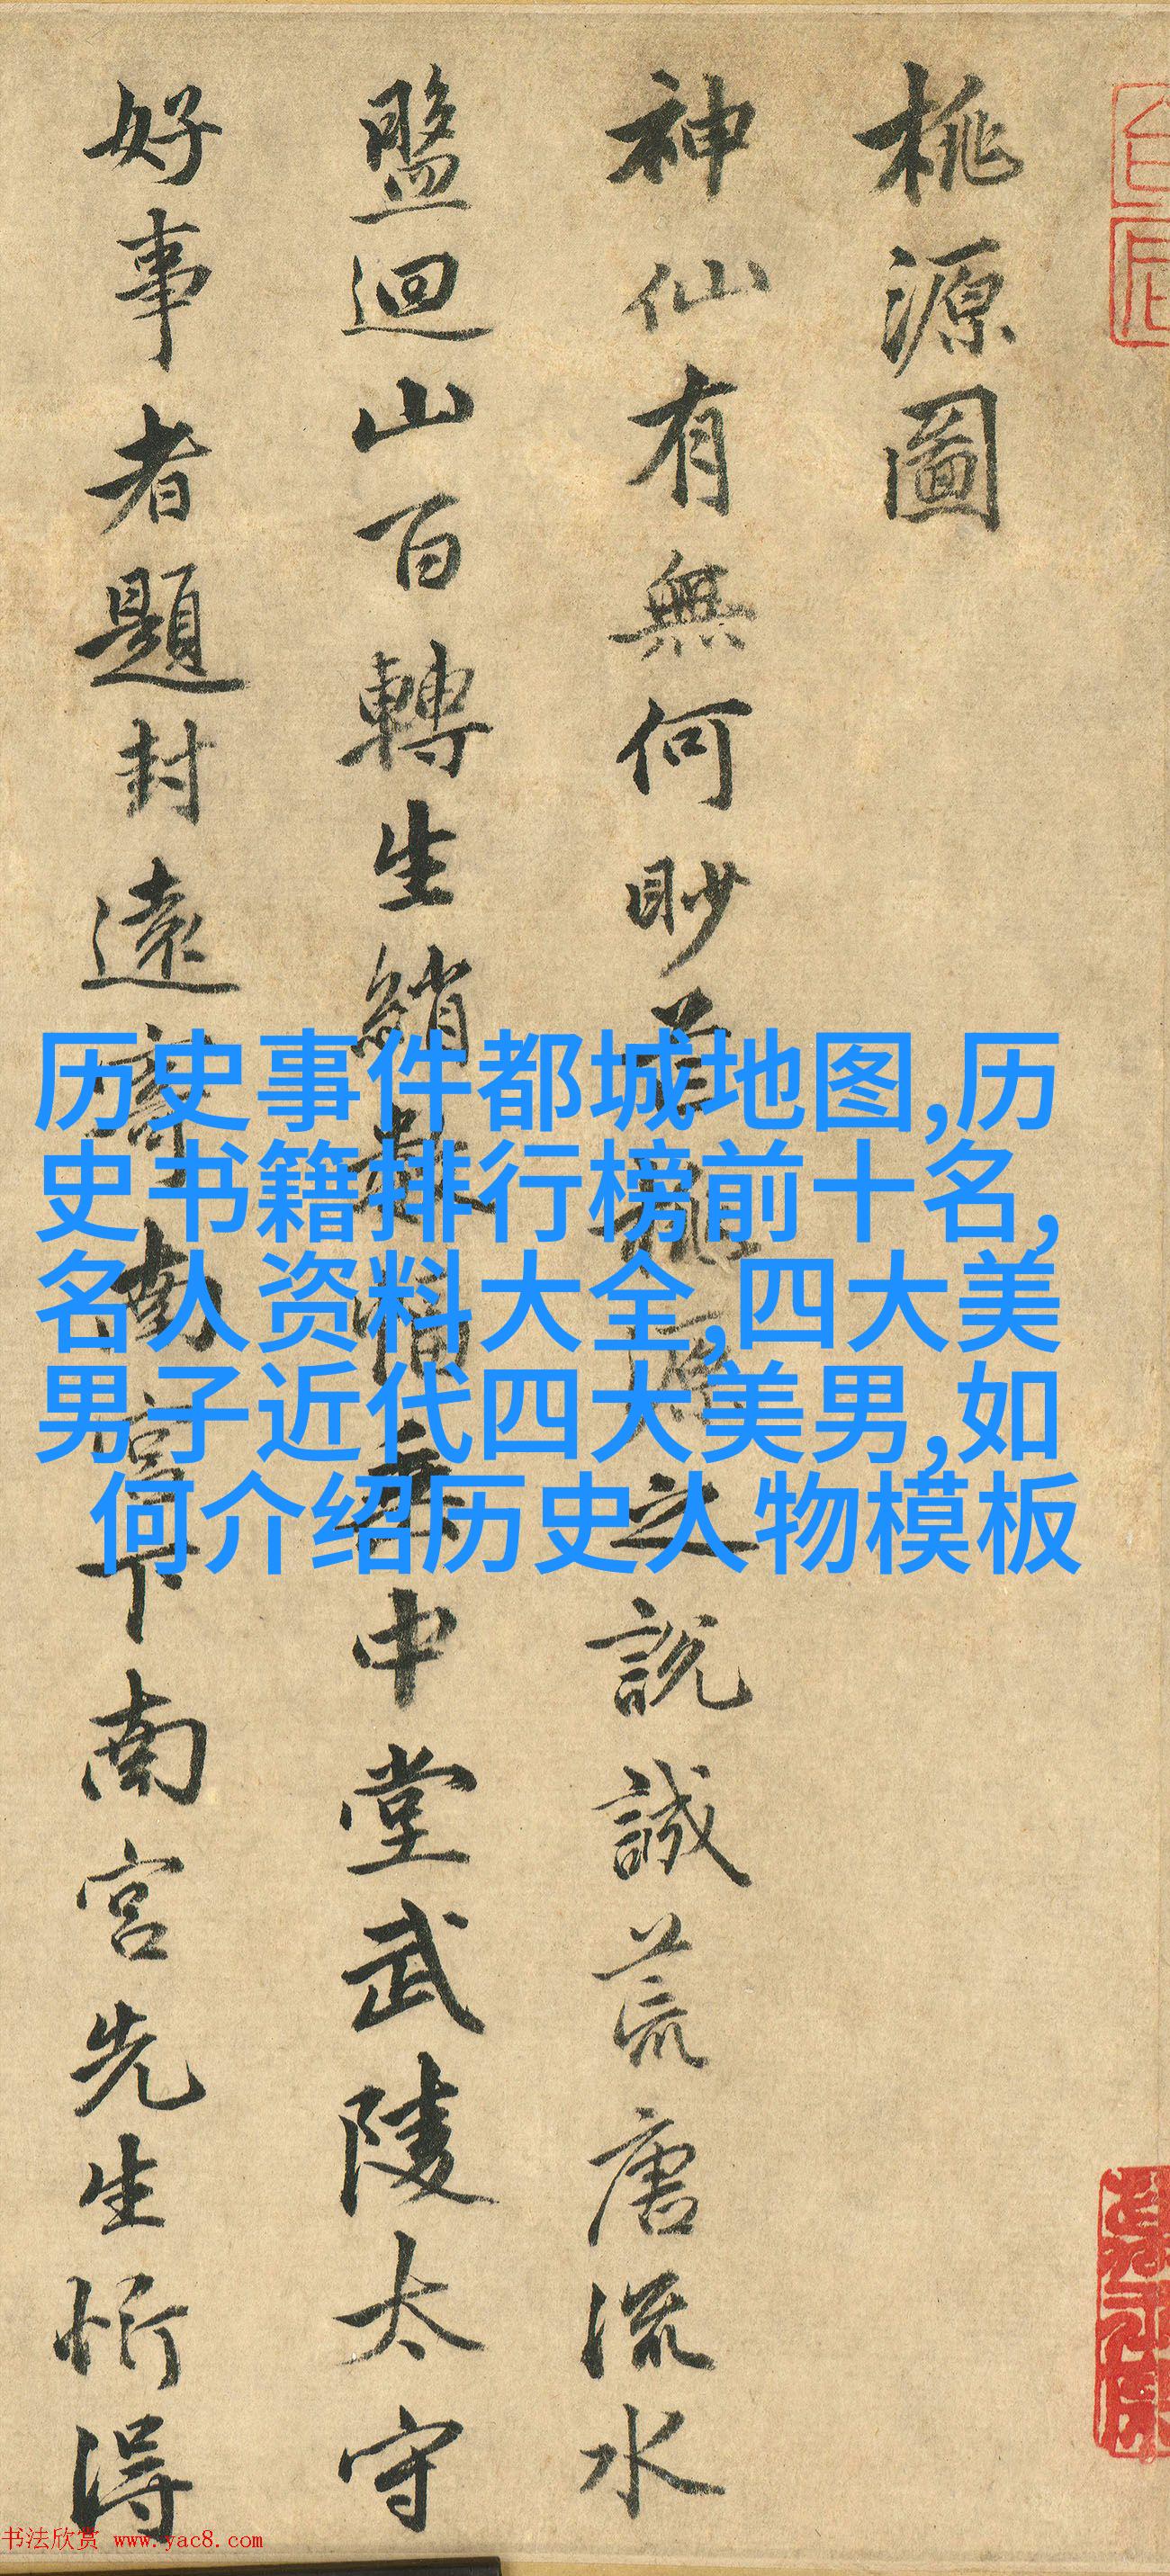 桃源圖
神仙有無何眇芒桃源之說誠荒唐流水
盤迴山百轉生綃數幅垂中堂武陵太守
好事者題封遠寄南宮下南宮先生忻得
历史事件都城地图,历
史书籍排行榜前十名,
名人资料大全,四大美
男子近代四大美男,如
何介绍历史人物模板
书法欣赏 www.yac8.com